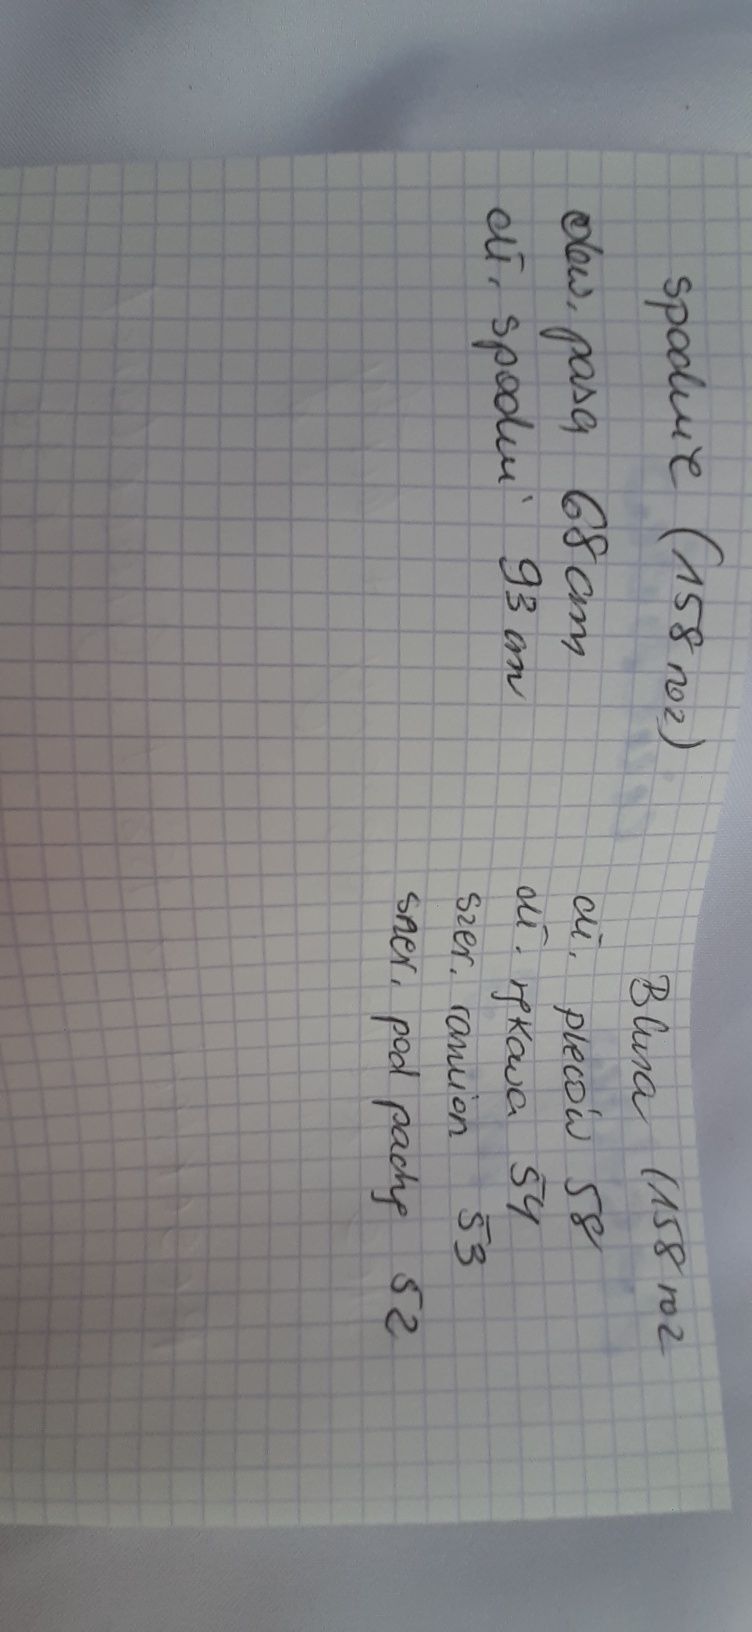 spodnie (158 roz)
obw. pasa 68 cm
dł. spodni 93 cm
Bluza (158 roz
dł. pleców 58
dł. rękawa 54
szer. ramion 53
szer. pod pachę 52